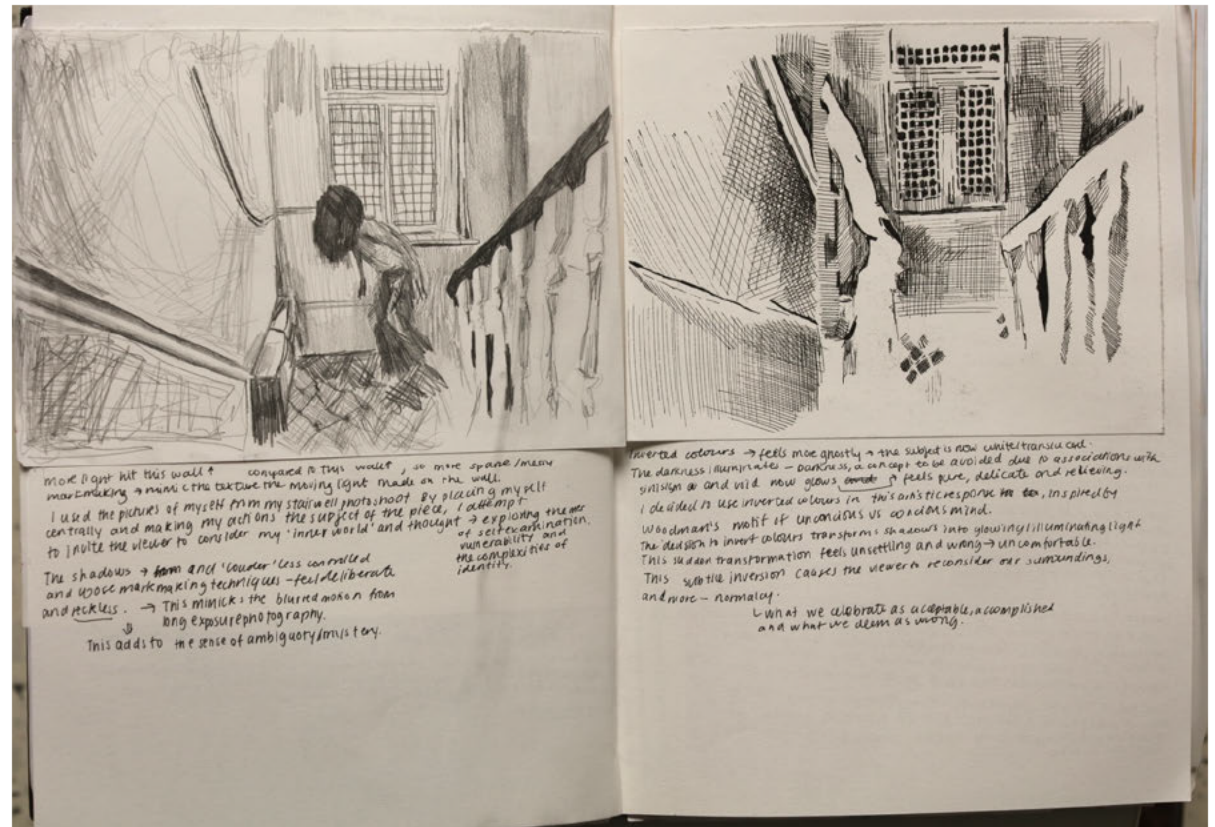 more light hit this wall ↑ compared to this wall ↗, so more sparse/messy
markmaking → mimic the texture the moving light made on the wall.
I used the pictures of myself from my stairwell photoshoot. By placing myself
centrally and making my actions the subject of the piece, I attempt
to invite the viewer to consider my 'inner world' and thought → exploring theme
of self examination,
vulnerability and
the complexities of
identity.
The shadows → and 'louder' less controlled
and loose markmaking techniques - feel deliberate
and reckless. → This mimicks the blurred motion from
long exposure photography.
This adds to the sense of ambiguoty/mistery.
Inverted colours → feels more ghostly → the subject is now white/translucent.
The darkness illuminates - Darkness, a concept to be avoided due to associations with
and now glows feels pure, delicate and relieving.
I decided to use inverted colours in this artistic response, inspired by
Woodman's motif of unconcious vs concious mind.
The decision to invert colours transforms shadows into glowing/illuminating light
This sudden transformation feels unsettling and wrong → uncomfortable.
This subtle inversion causes the viewer to reconsider our surroundings,
and more - normalcy.
what we celebrate as acceptable, accomplished
and what we deem as wrong.